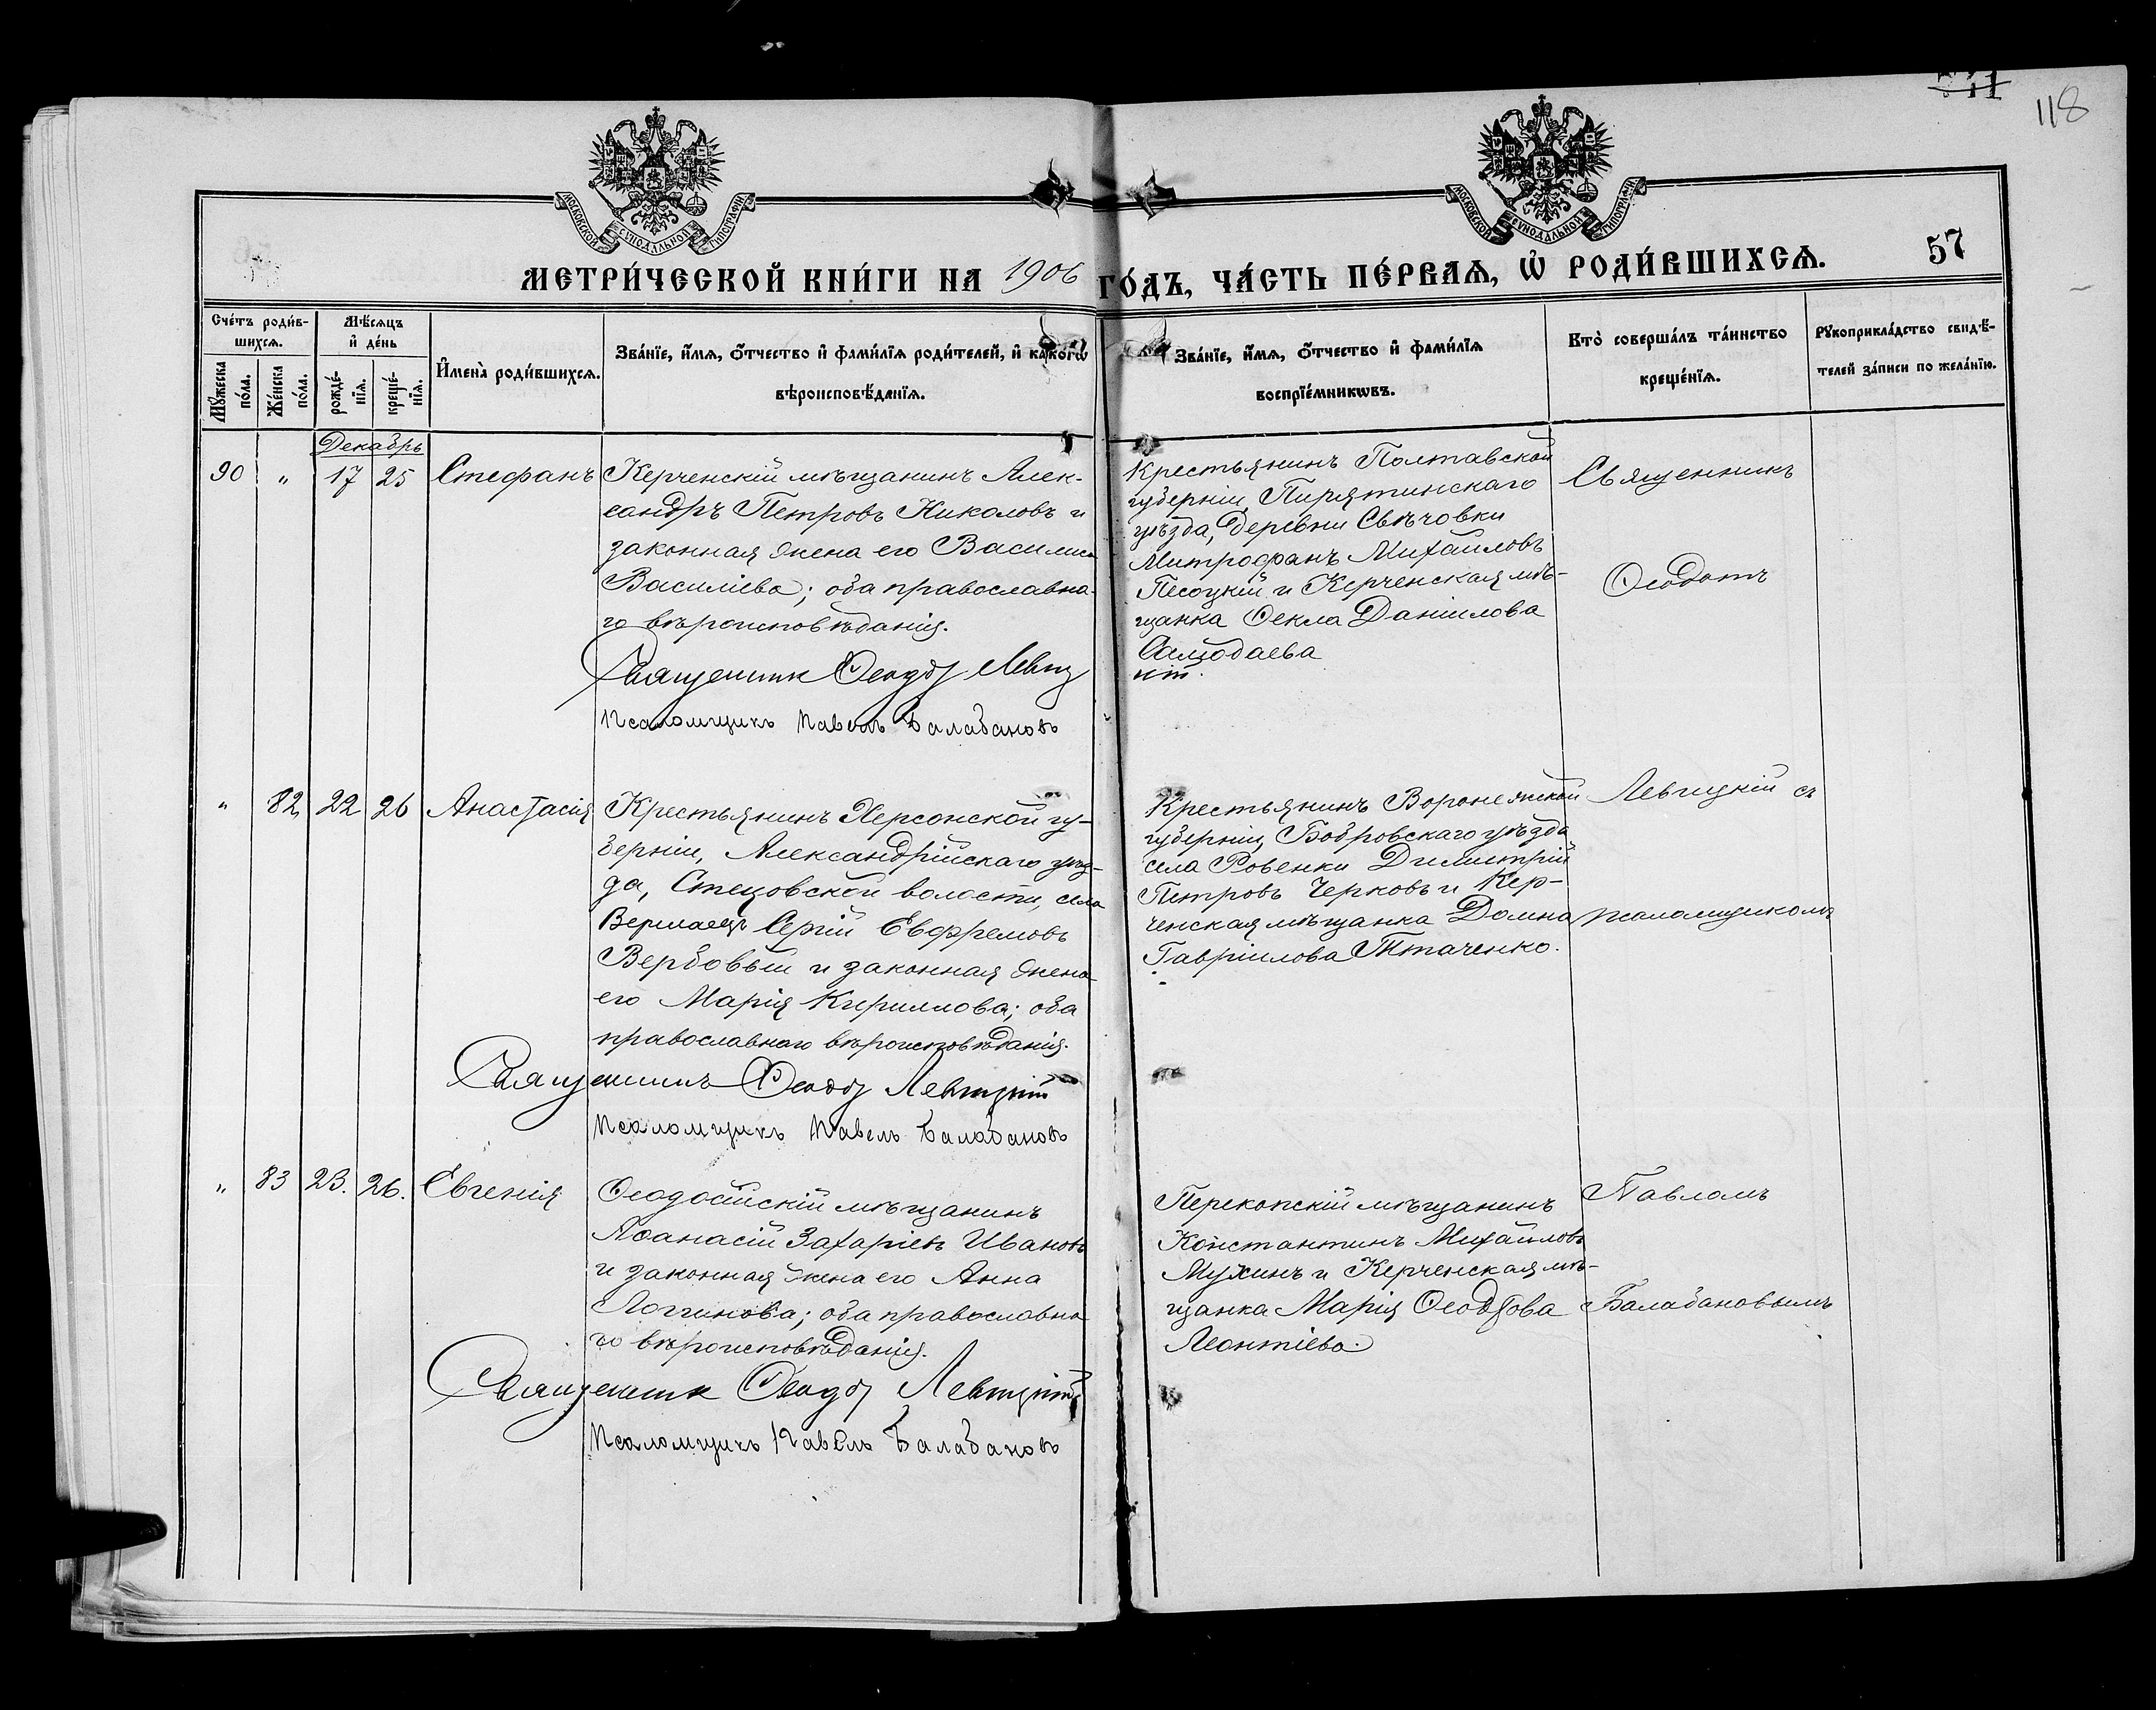 118
МОСКОВСКОЙ СѴНОДАЛЬНОЙ ТИПОГРАФІИ
МОСКОВСКОЙ СѴНОДАЛЬНОЙ ТИПОГРАФІИ
МЕТРИ́ЧЕСКОЙ КНИ́ГИ НА 1906 ГО́ДЪ, ЧА́СТЬ ПЕ́РВАѦ, Ѽ РОДИ́ВШИХСѦ. 57
Сче́тъ роди́в-
шихсѧ.
Мꙋ́жеска по́ла.
Же́нска по́ла.
Мѣ́сѧцъ и҆ де́нь
рожде́-нїѧ.
креще́-нїѧ.
И҆мена̀ роди́вшихсѧ.
Зва́нїе, и҆́мѧ, ѻ҆́тчество и҆ фами́лїѧ роди́телей, и҆ како́гѡ
вѣроисповѣ́данїѧ.
Зва́нїе, и҆́мѧ, ѻ҆́тчество и҆ фами́лїѧ
воспрїе́мникѡвъ.
Кто̀ соверша́лъ та́инство
креще́нїѧ.
Рꙋкоприкла́дство свидѣ́-
телей за́писи по жела́нїю.
Декабрь
90 " 17 25 Стефанъ
Керченскій мѣщанинъ Алек-
сандръ Петровъ Николовъ и
законная жена его Василиса
Василіева; оба православна-
го вѣроисповѣданія.
Священник Ѳеодот Левиц
Псаломщикъ Павелъ Балабановъ
Крестьянинъ Полтавской
губерніи, Пирятинскаго
уѣзда, деревни Свѣчовки
Митрофанъ Михаиловъ
Песоцкій и Керченская мѣ-
щанка Ѳекла Даніилова
Священникъ
Ѳеодотъ
" 82 22 26 Анастасія
Крестьянинъ Херсонской гу-
берніи, Александрійскаго уѣз-
да, Стецовской волости, села
Сергій Евфремовъ
Вербовый и законная жена
его Марія Кириллова; оба
православнаго вѣроисповѣданія.
Священникъ Ѳеодот Левицкій
Псаломщикъ Павелъ Балабановъ
Крестьянинъ Воронежской
губерніи, Бобровскаго уѣзда
села Ровенки Димитрій
Петровъ Черковъ и Кер-
ченская мѣщанка Домна
Гавріилова Ткаченко.
Левицкій съ
псаломщикомъ
" 83 23. 26. Евгенія
Ѳеодосійскій мѣщанинъ
Аѳанасій Захаріевъ Ивановъ
и законная жена его Анна
Логгинова; оба православна
го вѣроисповѣданія.
Священник Ѳеодот Левицкій
Псаломщикъ Павелъ Балабановъ
Перекопскій мѣщанинъ
Константинъ Михаиловъ
Мухинъ и Керченская мѣ-
щанка Марія Ѳеодорова
Леонтіева.
Павломъ
Балабановымъ